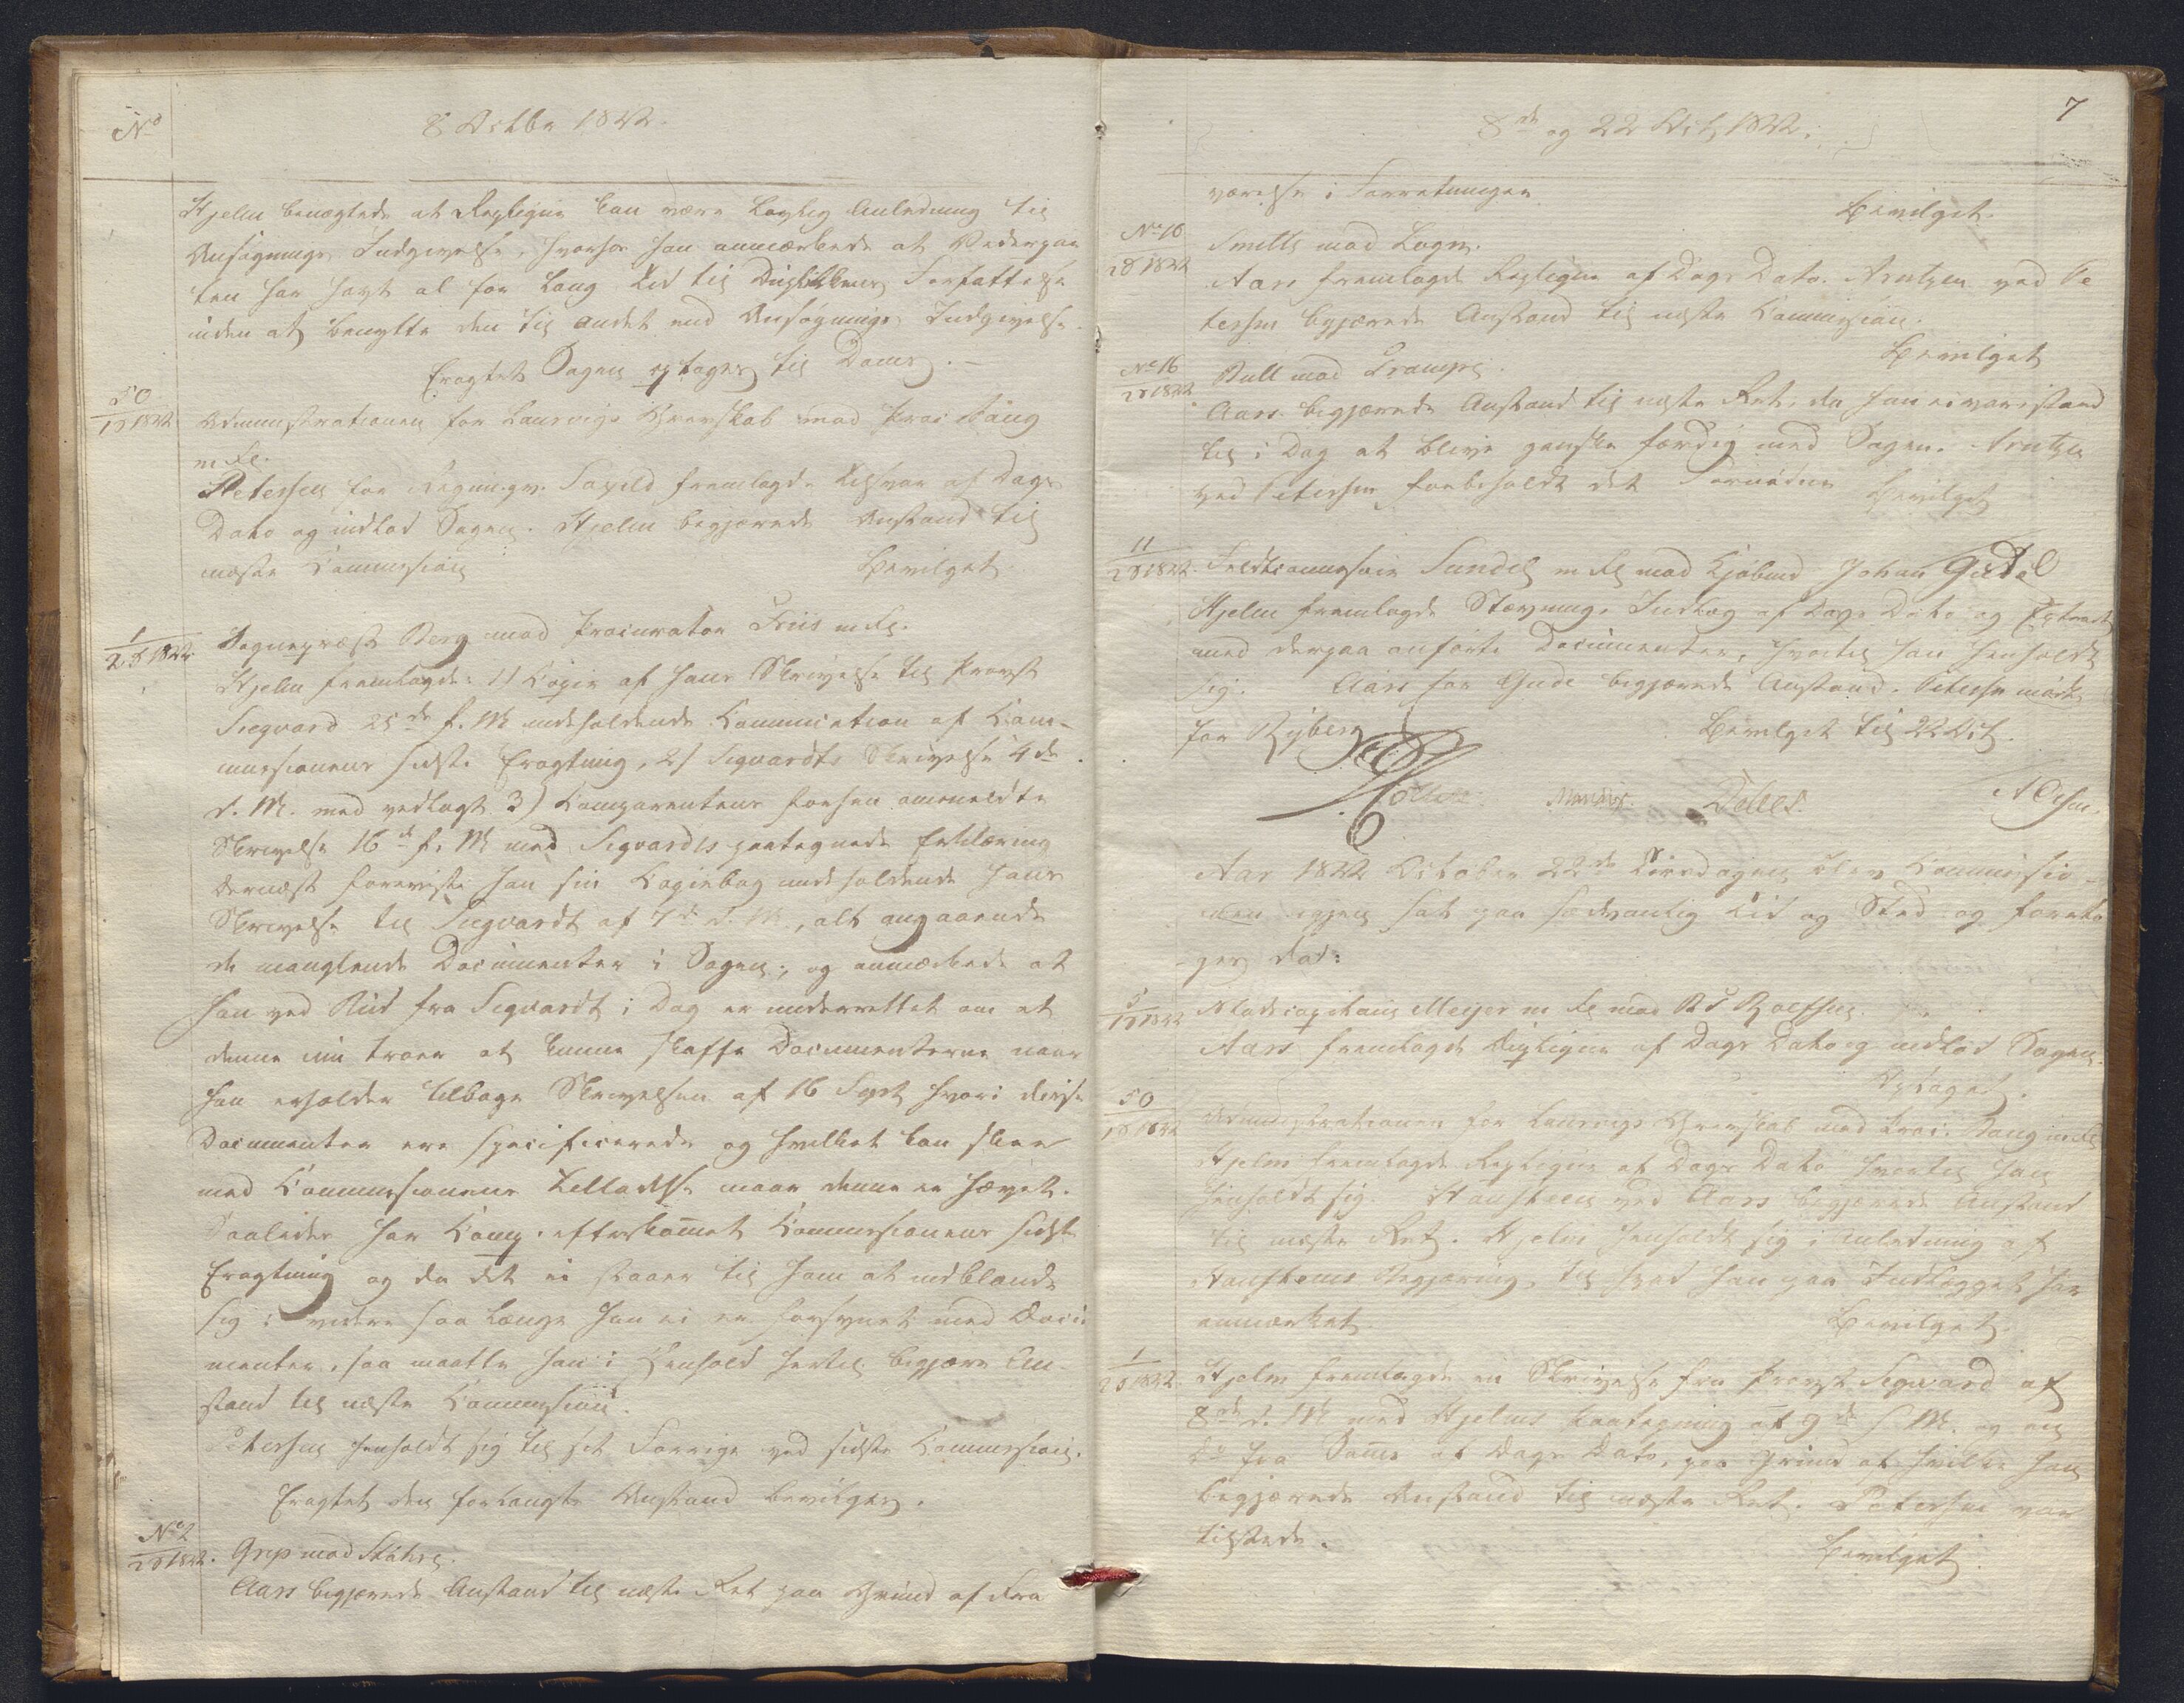 No
8 Octbr 1822.
Hjelm benægtede at Repliqen kan være lovlig Anledning til
Ansøgnings Indgivelse, hvorhos han anmærkede at Vederpar
ten har havt al for lang Tid til Duplikkens Forfattelse
uden at benytte den til andet end Ansøgnings Indgivelse.
Eragtet Sagen optages til Doms.
50
18 1822
Administrationen for Laurvigs Grevskab mod Proc Bang
m. fl.
Petersen for fremlagde Tilsvar af Dags
Dato og indlod Sagen. Hjelm begjærede Anstand til
næste Commission
Bevilget.
1
28 1822
Sognepræst Berg mod Procurator Friis m fl.
Hjelm fremlagde: 1) Copie af hans Skrivelse til Provst
Siegvard 25de f. M indeholdende Communication af Com-
missionens sidste Eragtning, 2) Sigvardts Skrivelse 4de
d. M. med vedlagt 3) Comparentens forhen ommeldte
Skrivelse 16de f. M med Sigvardts paategnede Erklæring
dernæst foreviste han sin Copiebog indeholdende hans
Skrivelse til Siegvardt af 7de d. M., alt angaaende
de manglende Documenter i Sagen, og anmærkede at
han ved Bud fra Sigvardt i Dag er underrettet om at
denne nu troer at kunne skaffe Documenterne naar
han erholder tilbage Skrivelsen af 16 Sept hvori disse
Documenter ere specificerede og hvilket kan skee
med Commissionens Tilladelse naar denne er hævet.
Saaledes har Comp. efterkommet Commissionens sidste
Eragtning og da det ei staaer til ham at indblande
sig i videre saa længe han ei er forsynet med Docu
menter, saa maatte han i Henhold hertil begjære An-
stand til næste Commission.
Petersen henholdt sig til sit Forrige ved sidste Commission.
Eragtet den forlangte Anstand bevilges.
No 2
28 1822.
Grep mod
Aars begjærede Anstand til næste Ret paa Grund af Fra
7
8de og 22 Oct 1822.
værelse i Forretninger
Bevilget.
No 10
28 1822
Smitts mod Lagn.
Aars fremlagde Repliqen af Dags Dato. Arntzen ved Pe
tersen begjærede Anstand til næste Commission.
Bevilget
No 16
28 1822
Bull mod
Aars begjærede Anstand til næste Ret, da han ei var istand
til i Dag at blive ganske færdig med Sagen. Arntzen
ved Petersen forbeholdt det Fornødne
Bevilget
11
28 1822.
Feldtcommissair Sundt m fl mod Kjøbmd Johan Gude
Hjelm fremlagde Stævnings Indlæg af Dags Dato og Extract
med derpaa anførte Documenter, hvortil han henholdt
sig. Aars for Gude begjærede Anstand. Petersen mødte
for Ryberg
Bevilget til 22 Oct.
Aar 1822 October 22de blev Commissio-
nen igjen sat paa sædvanlig Tid og Sted og foreto
ges da:
5
18 1822
Stadscapitain Meyer m fl mod
Aars fremlagde Dupliqen af Dags Dato og indlod Sagen.
Optaget.
50
18 1822
Administrationen for Laurvigs Grevskab mod Proc. Bang m fl
Hjelm fremlagde Repliqen af Dags Dato hvortil han
henholdt sig. Hansteen ved Aars begjærede Anstand
til næste Ret. Hjelm henholdt sig i Anledning af
Hansteens Begjæring, til hvad han paa Indlægget har
anmærket.
Bevilget.
1
28 1822
Hjelm fremlagde en Skrivelse fra Provst Sigvard af
8de d. M med Hjelms Paategning af 9de s M. og en
Do fra Samme af Dags Dato, paa Grund af hvilke han
begjærede Anstand til næste Ret. Petersen var
tilstede.
Bevilget.